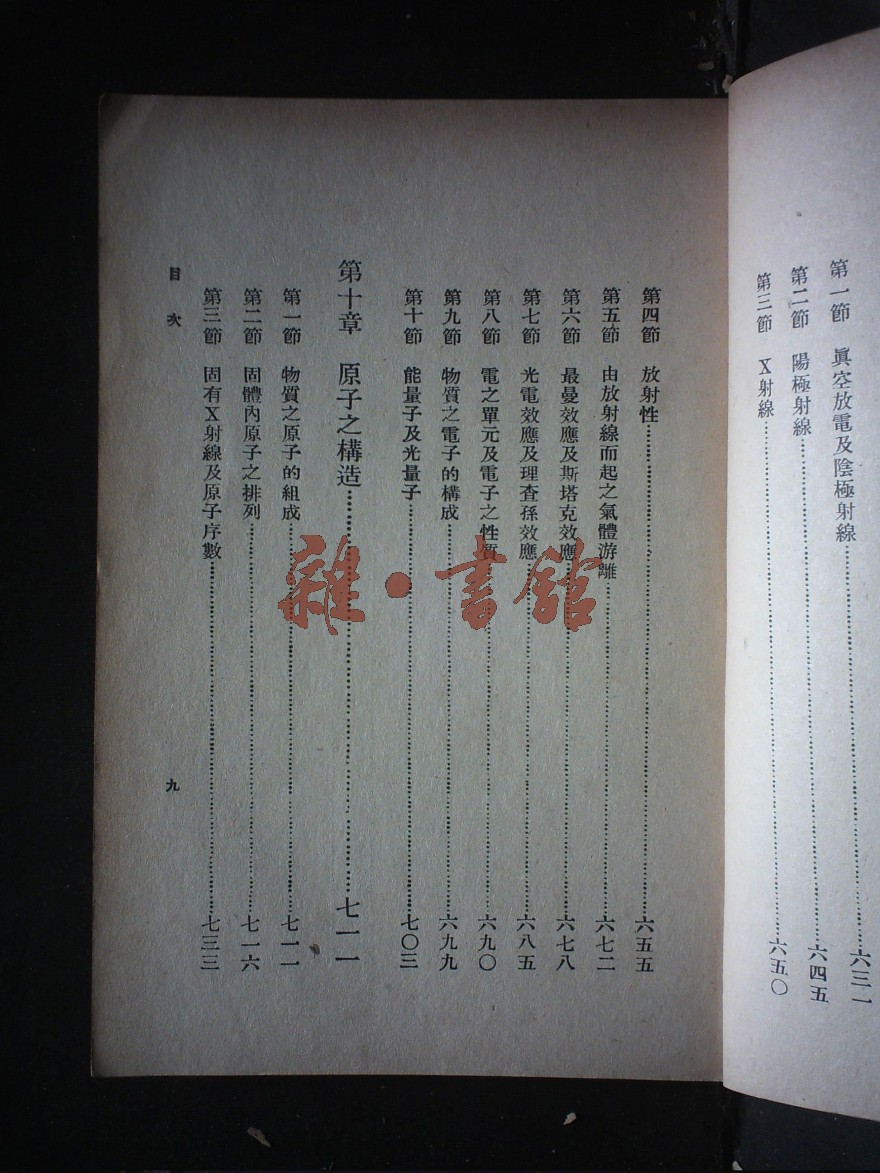 第一節　眞空放電及陰極射線……六三一
第二節　陽極射線……六四五
第三節　X射線……六五〇
第四節　放射性……六五五
第五節　由放射線而起之氣體游離……六七二
第六節　最曼效應及斯塔克效應……六七八
第七節　光電效應及理查孫效應……六八五
第八節　電之單元及電子之性質……六九〇
第九節　物質之電子的構成……六九九
第十節　能量子及光量子……七〇三
第十章　原子之構造……七一一
第一節　物質之原子的組成……七一一
第二節　固體內原子之排列……七一六
第三節　固有X射線及原子序數……七三三
目次　九
雜·書館